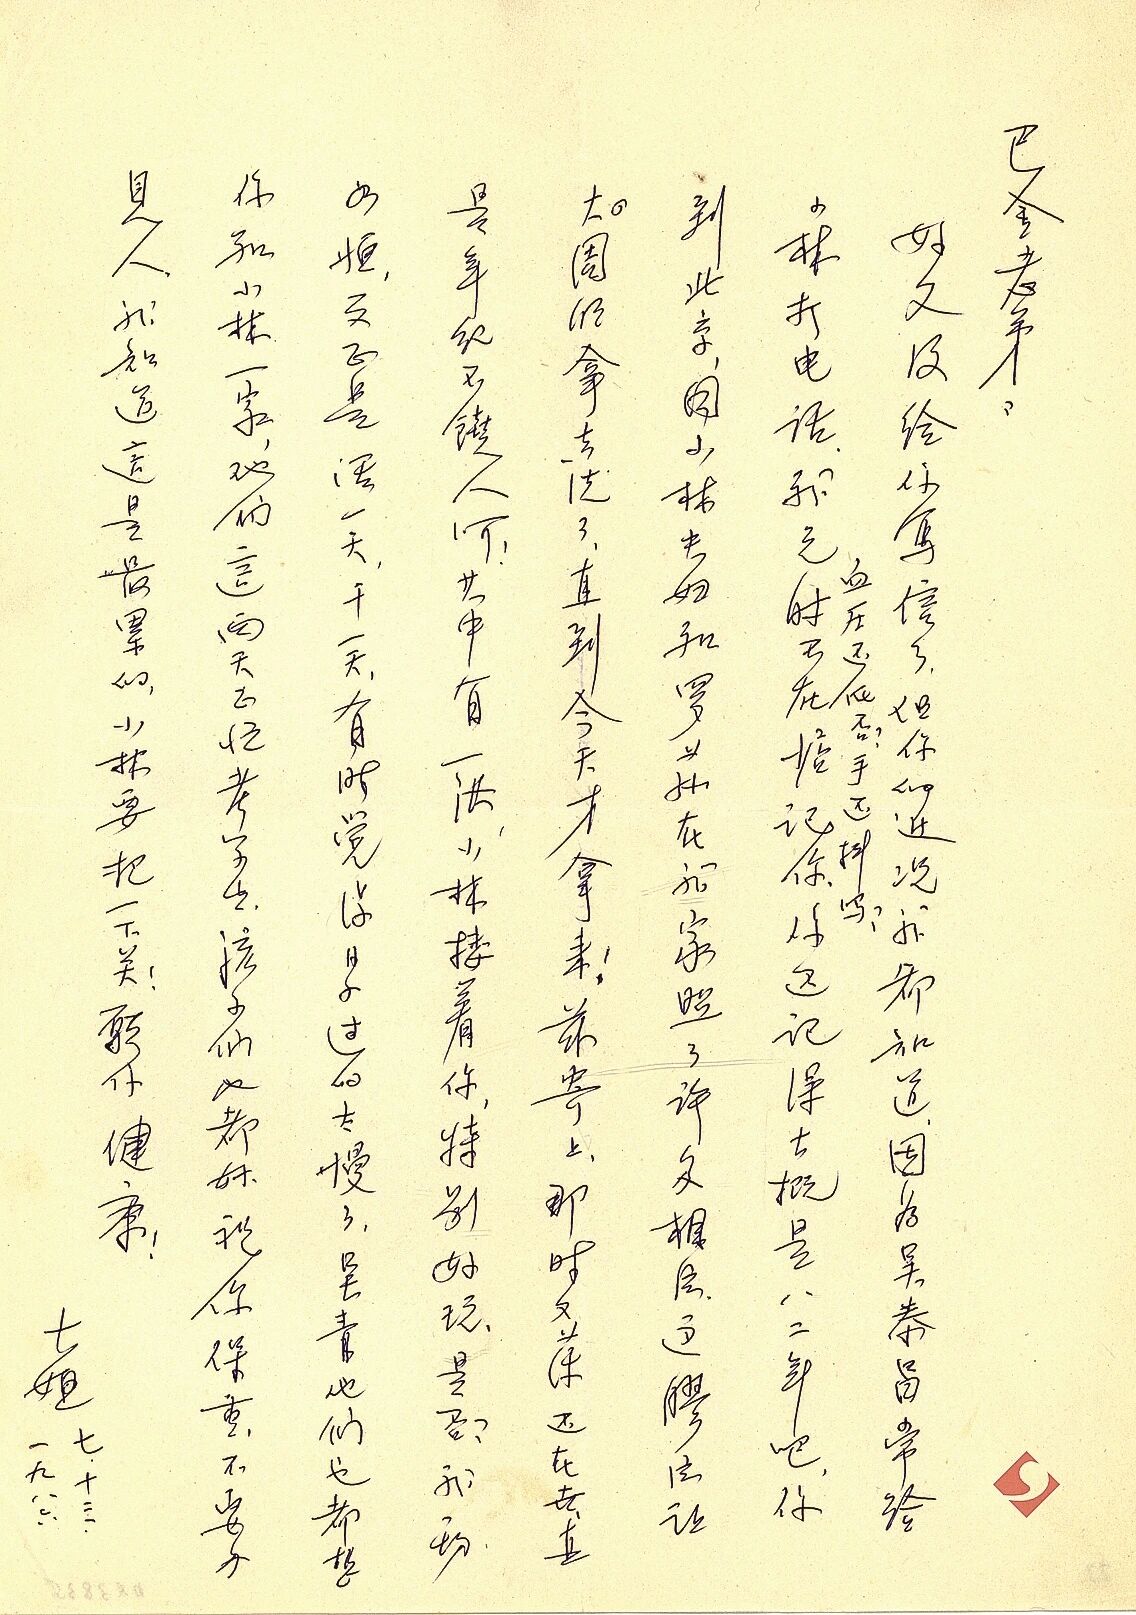 巴金老弟：
好久没给你写信了，但你的近况我都知道，因为吴泰昌常给
小林打电话，我无时不在惦记你，你还记得大概是八二年吧，你
血压还低否？手还抖吗？
到北京，因小林夫妇和罗荪在我家照了许多相片，这胶片让
大周明拿去洗了，直到今天才拿来！兹寄上，那时文藻还在世，真
是年纪不饶人呵！其中有一张，小林搂着你，特别好玩，是否？我行动
如恒，真正是活一天，干一天，有时觉得日子过的太慢了，吴青他们也都想
你和小林一家，他们這两天正忙考学生，孩子们也都好，祝你保重，不要多
見人，我知道這是最累的，小林要把一下关！願你健康！
七姐
七、十三、
一九八六、